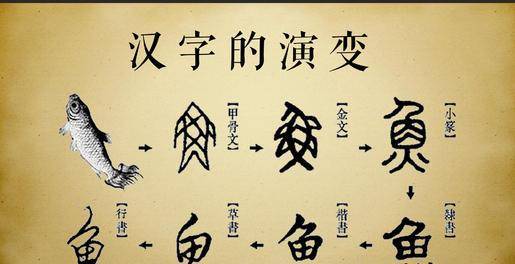 汉字的演变
【甲骨文】
【金文】
【小篆】
魚
【隸書】
魚
【楷書】
鱼
【草書】
鱼
【行書】
鱼